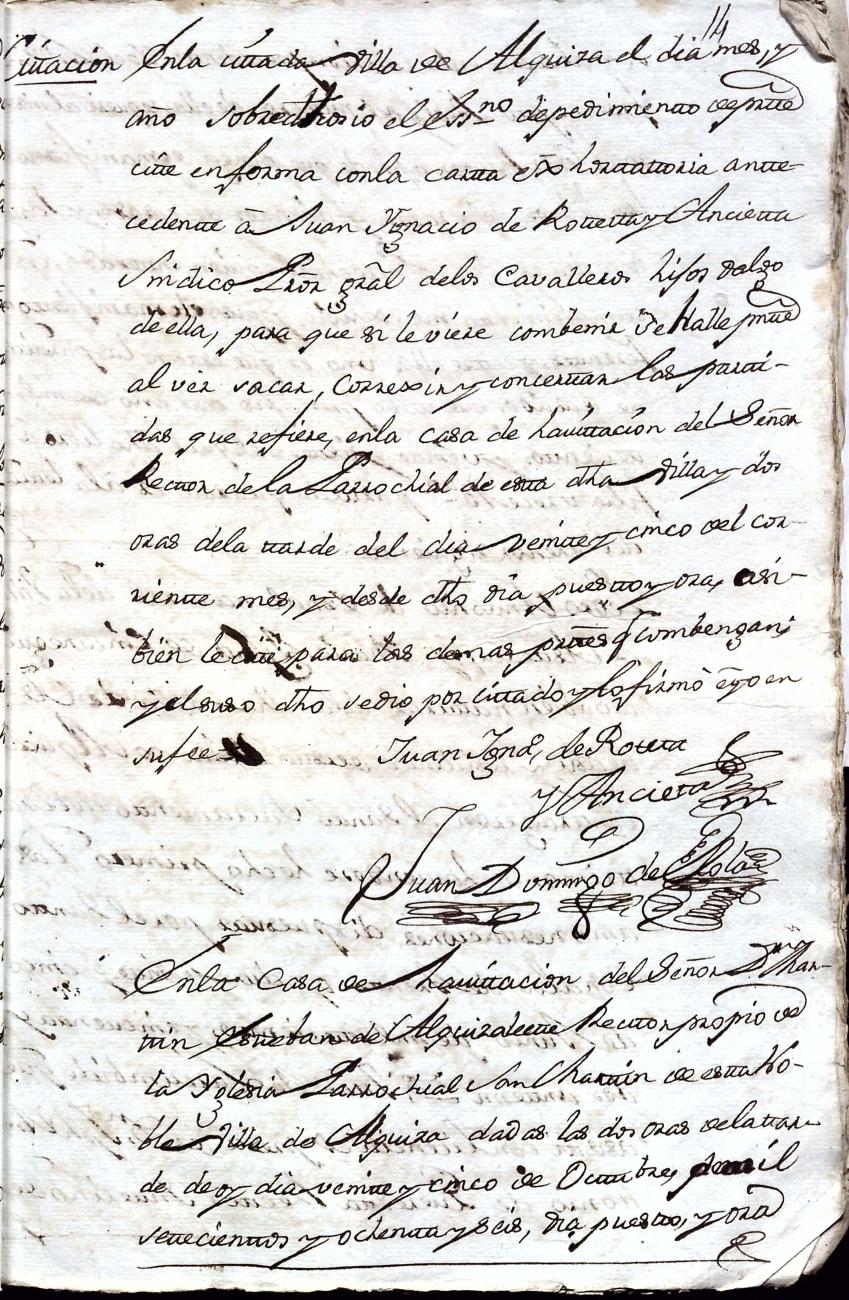 14
Cittacion Enla cittada Villa de Alquiza el dia mes, y
año sobredhõ yo el Essno depedimientto de partte
citte enforma conla cartta exhorttattoria antte-
cedentte â Juan Ygnacio de Rotetta y Ancietta
Sindico Pror gral delos Cavalleros hijos dalgo
de ella, para que si le viere combenir se halle pntte
al vér sacar, Correxir y concerttar las partti-
das que refiere, enla casa de havittacion del Señor
Recttor de la Parrochial de estta dha Villa y dos
oras dela ttarde del dia veintte y cinco del cor-
rientte mes, y desde dho dia puestto y ora, asi-
bien le citte para las demas parttes q combengan;
y el suso dho sedio por cittado y lo firmô e yo en
su fee
Juan Ygnõ, de Rotetta
y Ancietta
Juan Domingo de
Enla Casa de havittacion del Señor Dn Mar-
ttin Esttevan de Alquizalette Recttor propio de
la Yglesia Parrochial San Marttin de estta No-
ble Villa de Alquiza dadas las dos oras dela ttar-
de de oy dia veintte y cinco de Octtubre, de mil
settecienttos y ochentta y seis, dia puestto, y ora